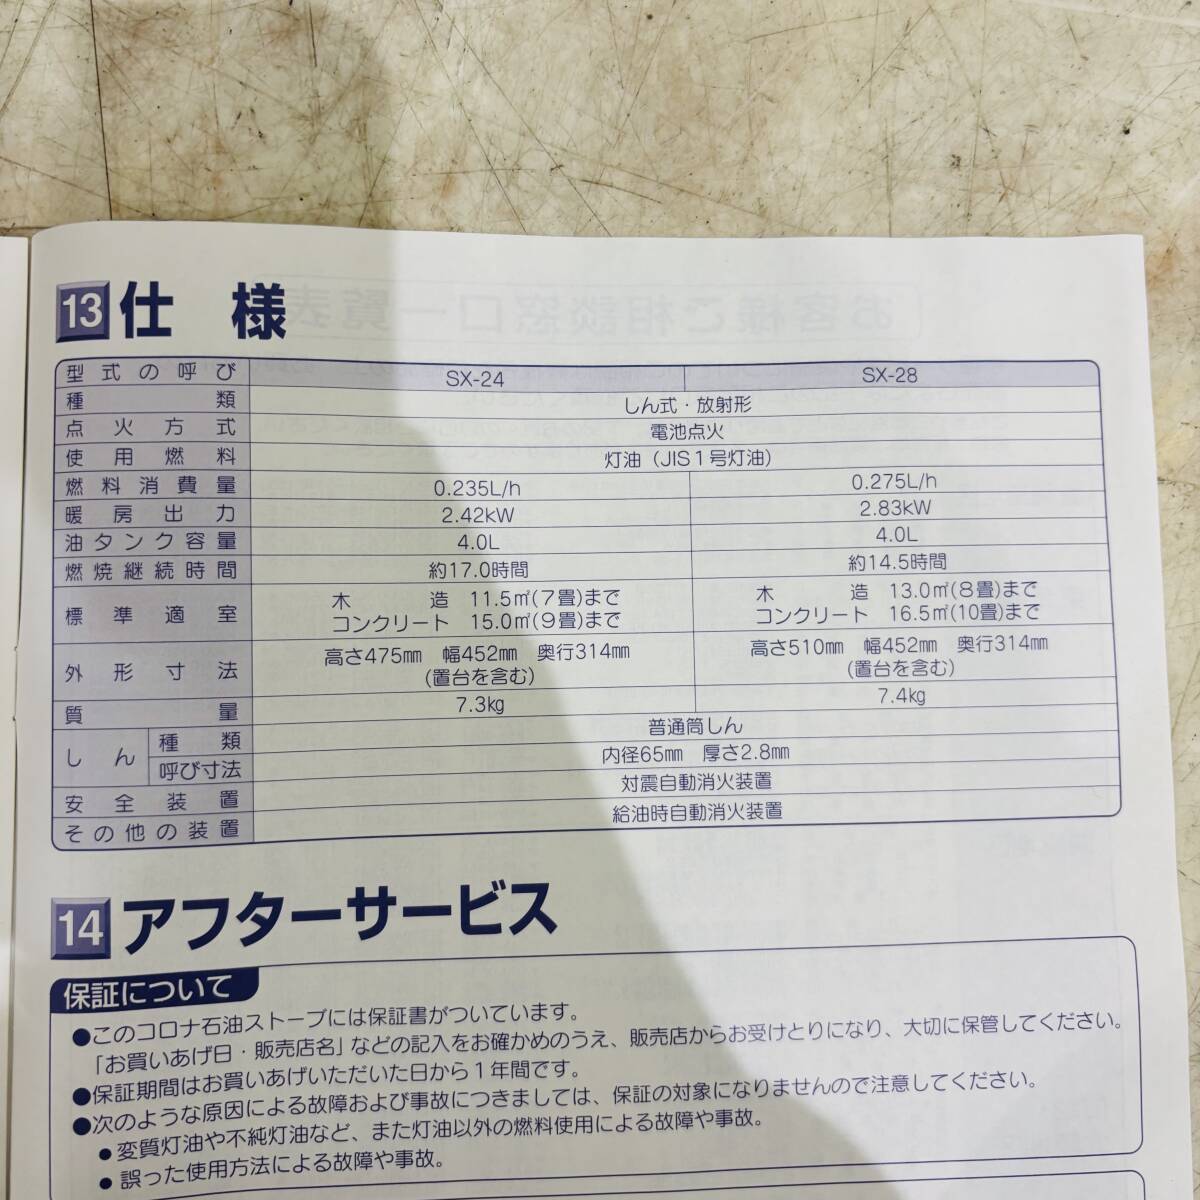 13 仕様
型式の呼び SX-24 SX-28
種類 しん式・放射形
点火方式 電池点火
使用燃料 灯油(JIS1号灯油)
燃料消費量 0.235L/h 0.275L/h
暖房出力 2.42kW 2.83kW
油タンク容量 4.0L 4.0L
燃焼継続時間 約17.0時間 約14.5時間
標準適室 木造 11.5㎡(7畳)まで 木造 13.0㎡(8畳)まで
コンクリート 15.0㎡(9畳)まで コンクリート 16.5㎡(10畳)まで
外形寸法 高さ475㎜ 幅452㎜ 奥行314㎜ 高さ510㎜ 幅452㎜ 奥行314㎜
(置台を含む) (置台を含む)
質量 7.3kg 7.4kg
しん 種類 普通筒しん
呼び寸法 内径65㎜ 厚さ2.8㎜
安全装置 対震自動消火装置
その他の装置 給油時自動消火装置
14 アフターサービス
保証について
●このコロナ石油ストーブには保証書がついています。
「お買いあげ日・販売店名」などの記入をお確かめのうえ、販売店からお受けとりになり、大切に保管してください。
●保証期間はお買いあげいただいた日から1年間です。
●次のような原因による故障および事故につきましては、保証の対象になりませんので注意してください。
●変質灯油や不純灯油など、また灯油以外の燃料使用による故障や事故。
●誤った使用方法による故障や事故。